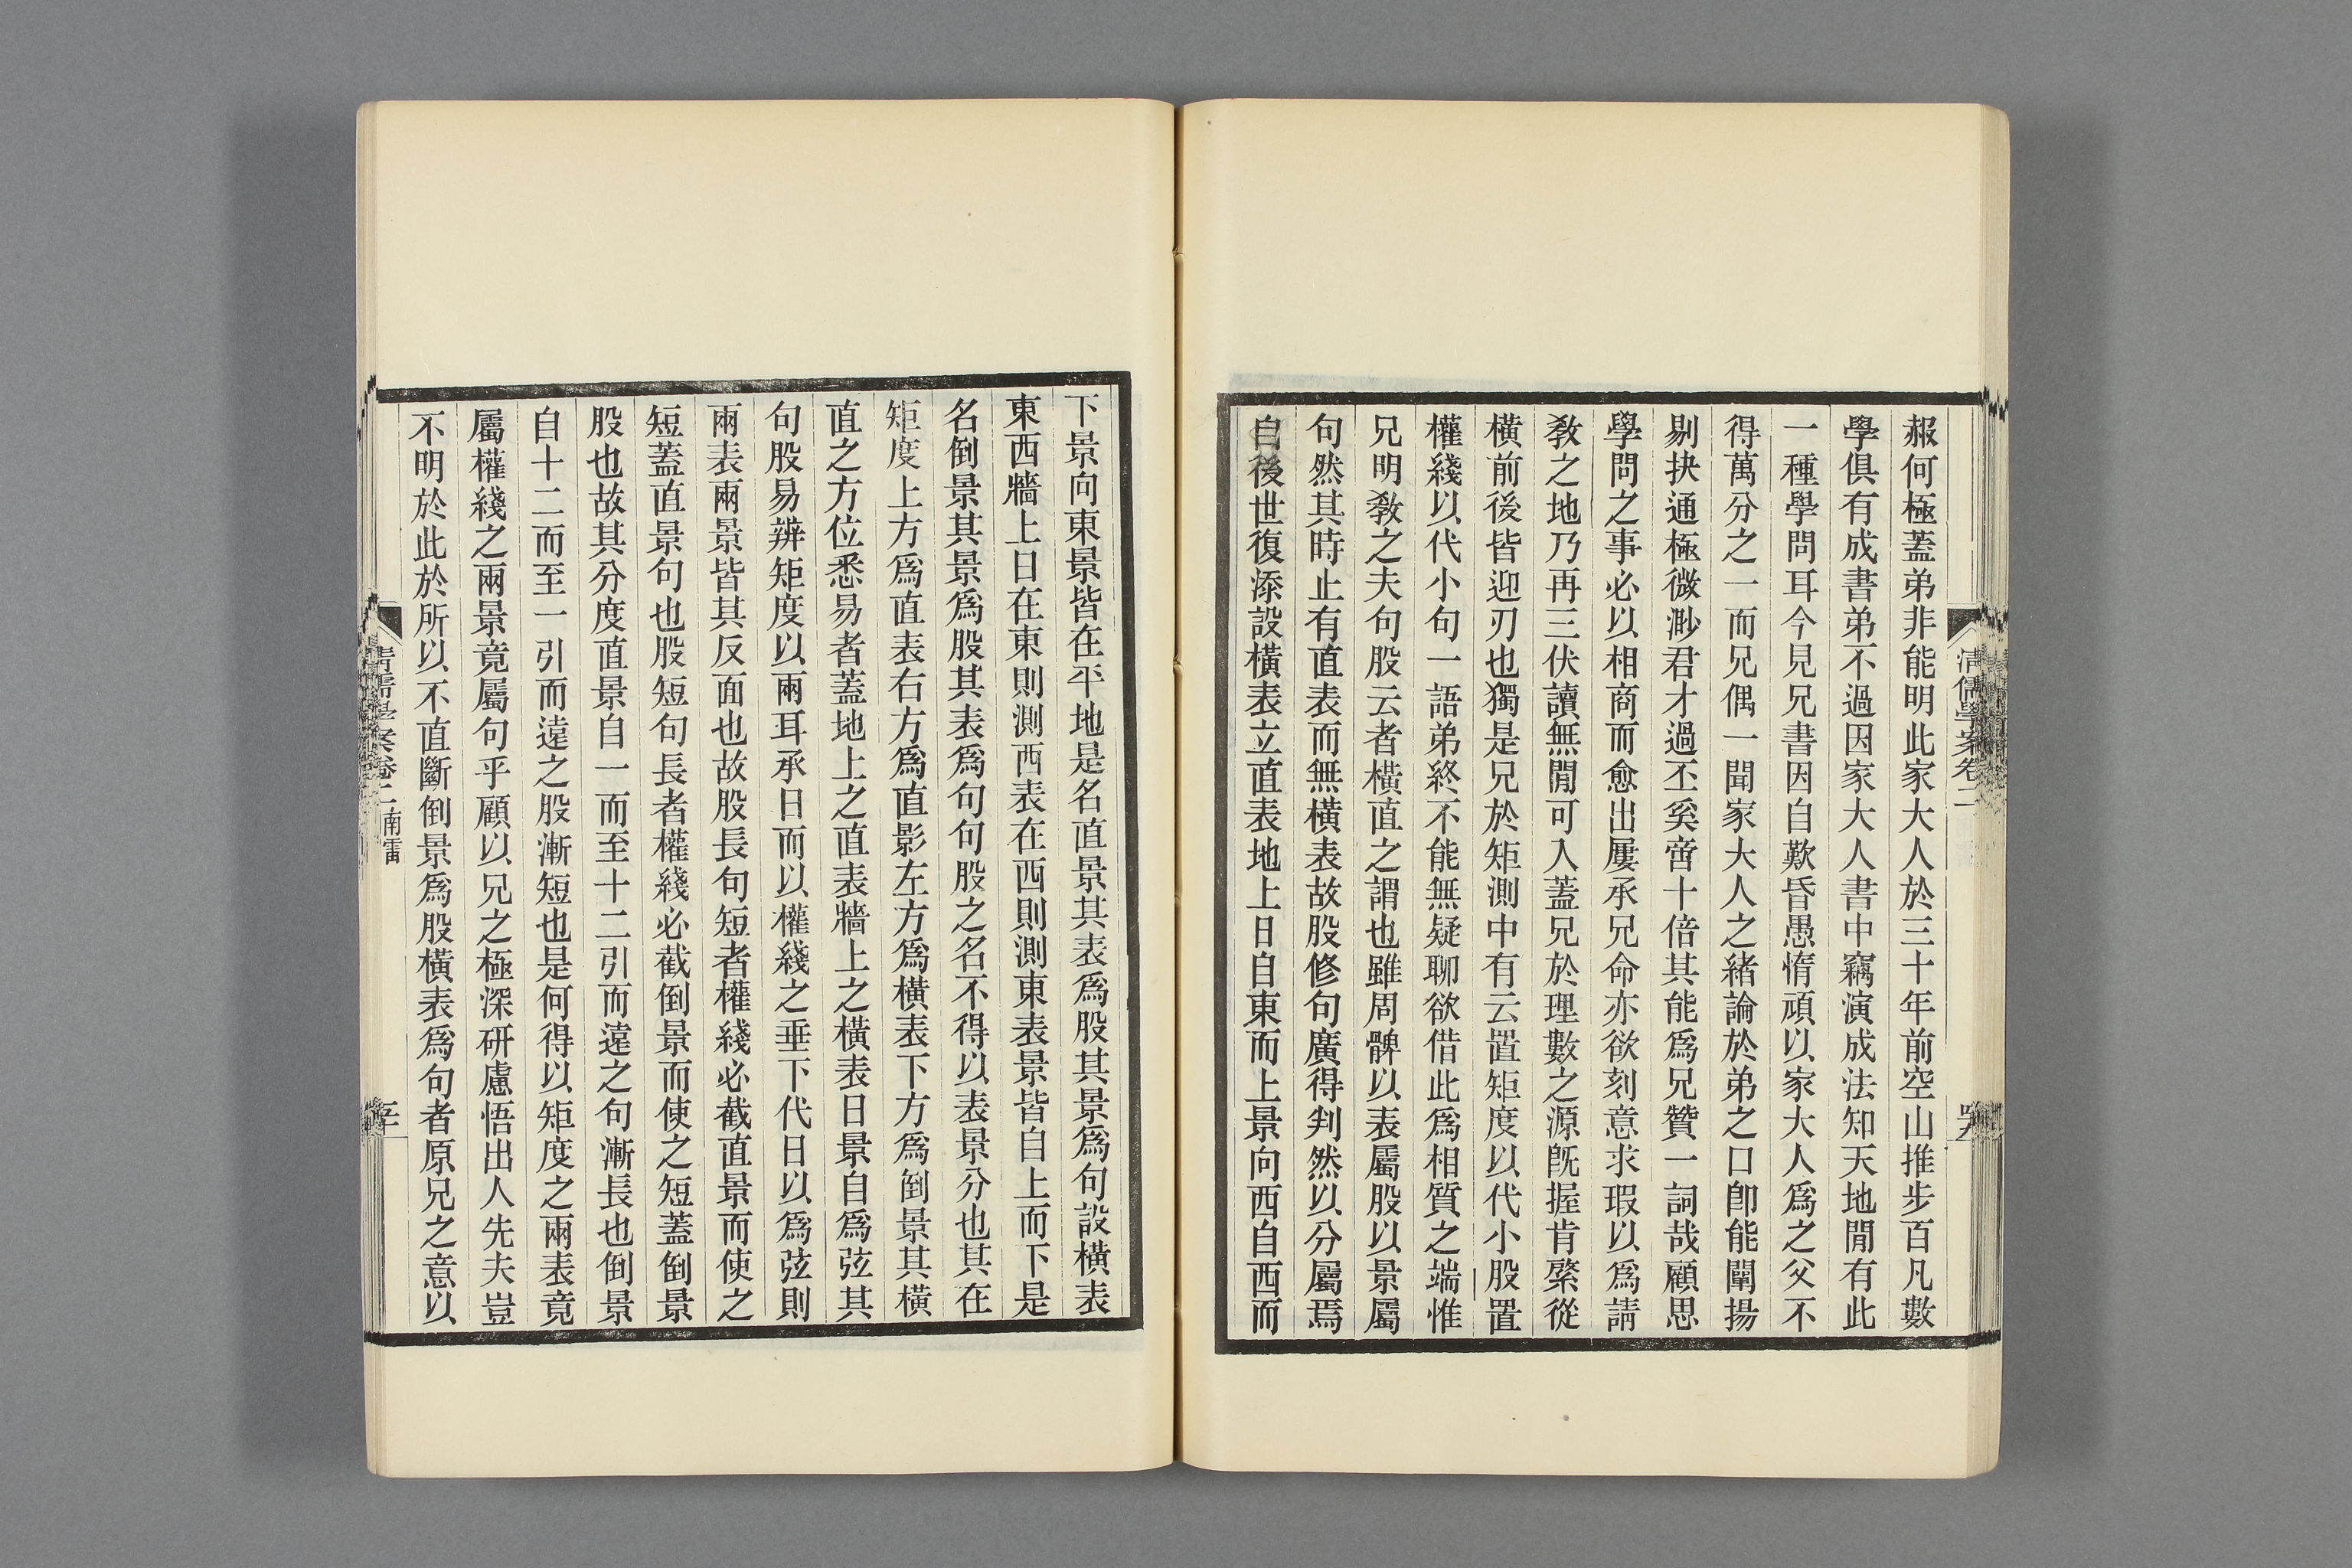 赧何極蓋弟非能明此家大人於三十年前空山推步百凡數
學俱有成書弟不過因家大人書中竊演成法知天地閒有此
一種學問耳今見兄書因自歎昏愚惰頑以家大人爲之父不
得萬分之一而兄偶一聞家大人之緒論於弟之口卽能闡揚
剔抉通極微渺君才過丕奚啻十倍其能爲兄贊一詞哉顧思
學問之事必以相商而愈出屢承兄命亦欲刻意求瑕以爲請
敎之地乃再三伏讀無閒可入蓋兄於理數之源旣握肯綮從
橫前後皆迎刃也獨是兄於矩測中有云置矩度以代小股置
權綫以代小句一語弟終不能無疑聊欲借此爲相質之端惟
兄明敎之夫句股云者橫直之謂也雖周髀以表屬股以景屬
句然其時止有直表而無橫表故股修句廣得判然以分屬焉
自後世復添設橫表立直表地上日自東而上景向西自西而
清儒學案卷二
下景向東景皆在平地是名直景其表爲股其景爲句設橫表
東西牆上日在東則測西表在西則測東表景皆自上而下是
名倒景其景爲股其表爲句句股之名不得以表景分也其在
矩度上方爲直表右方爲直影左方爲橫表下方爲倒景其橫
直之方位悉易者蓋地上之直表牆上之橫表日景自爲弦其
句股易辨矩度以兩耳承日而以權綫之垂下代日以爲弦則
兩表兩景皆其反面也故股長句短者權綫必截直景而使之
短蓋直景句也股短句長者權綫必截倒景而使之短蓋倒景
股也故其分度直景自一而至十二引而遠之句漸長也倒景
自十二而至一引而遠之股漸短也是何得以矩度之兩表竟
屬權綫之兩景竟屬句乎顧以兄之極深研慮悟出人先夫豈
不明於此於所以不直斷倒景爲股橫表爲句者原兄之意以
清儒學案卷二 南雷